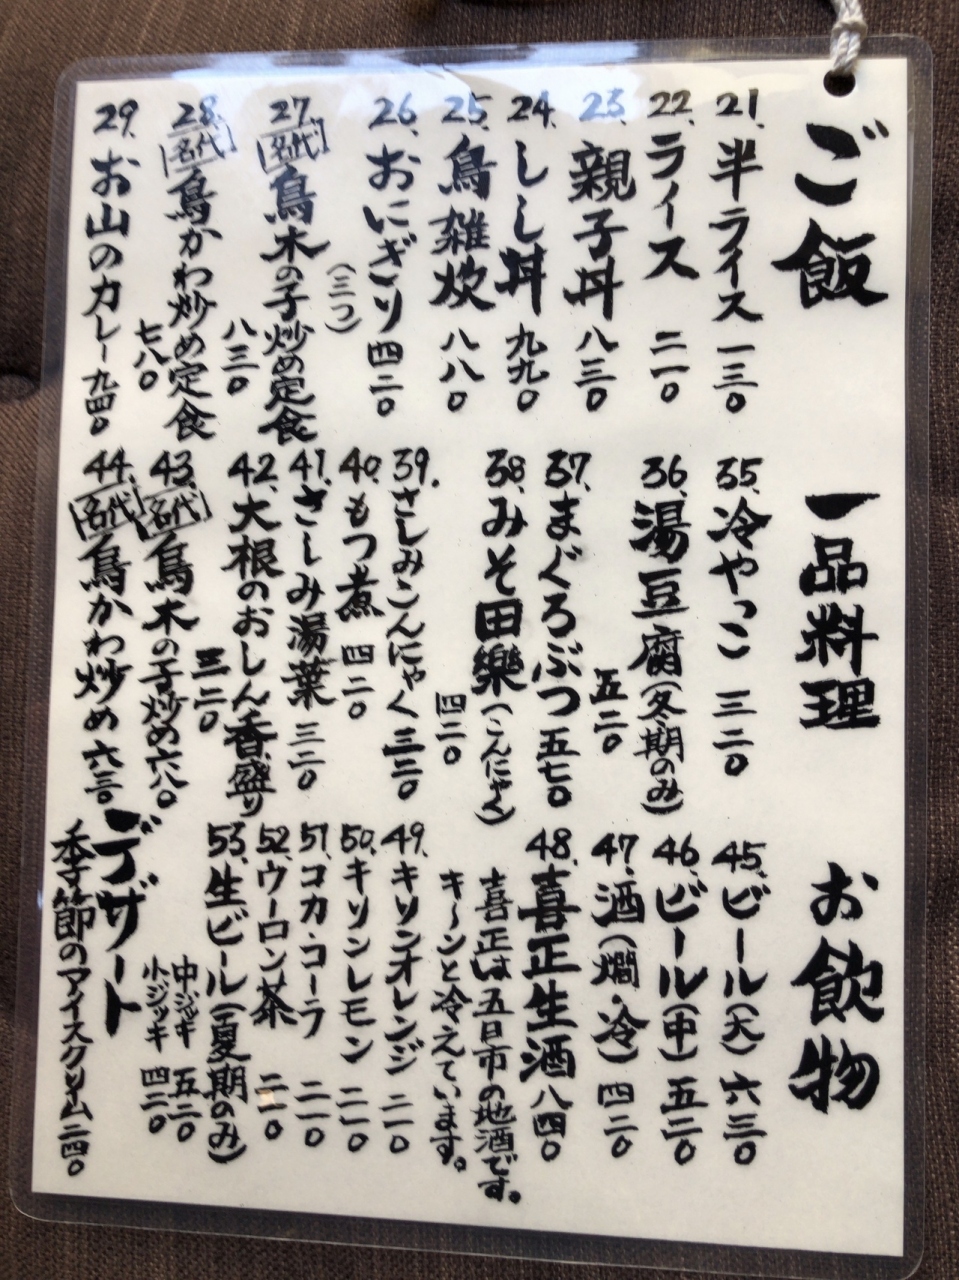 ご飯
21.半ライス 一三〇
22.ライス 二一〇
23.親子丼 八三〇
24.しし丼 九九〇
25.鳥雑炊 八八〇
26.おにぎり 四二〇
(三つ)
27.名代 鳥木の子炒め定食
八三〇
28.名代 鳥かわ炒め定食
七八〇
29.お山のカレー 九四〇
一品料理
35.冷やっこ 三二〇
36.湯豆腐(冬期のみ)
五二〇
37.まぐろぶつ 五七〇
38.みそ田樂(こんにゃく)
四二〇
39.さしみこんにゃく 三二〇
40.もつ煮 四二〇
41.さしみ湯葉 三二〇
42.大根のおしん香盛り
三二〇
43.名代 鳥木の子炒め 六八〇
44.名代 鳥かわ炒め 六三〇
お飲物
45.ビール(大) 六三〇
46.ビール(中) 五二〇
47.酒(燗・冷) 四二〇
48.喜正生酒 八四〇
喜正は五日市の地酒です。
キ〜ンと冷えています。
49.キリンオレンジ 二一〇
50.キリンレモン 二一〇
51.コカ・コーラ 二一〇
52.ウーロン茶 二一〇
53.生ビール(夏期のみ)
中ジッキ 五二〇
小ジッキ 四二〇
デザート
季節のアイスクリーム 二四〇